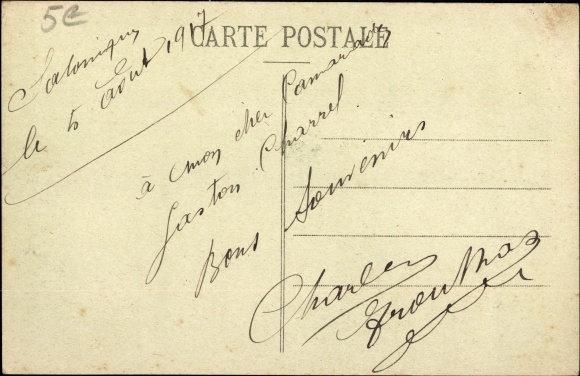 5€
CARTE POSTALE
Salonique
le 5 Août 1917
à mon cher Camarade
Gaston Charrel
Bons Souvenirs
Charles